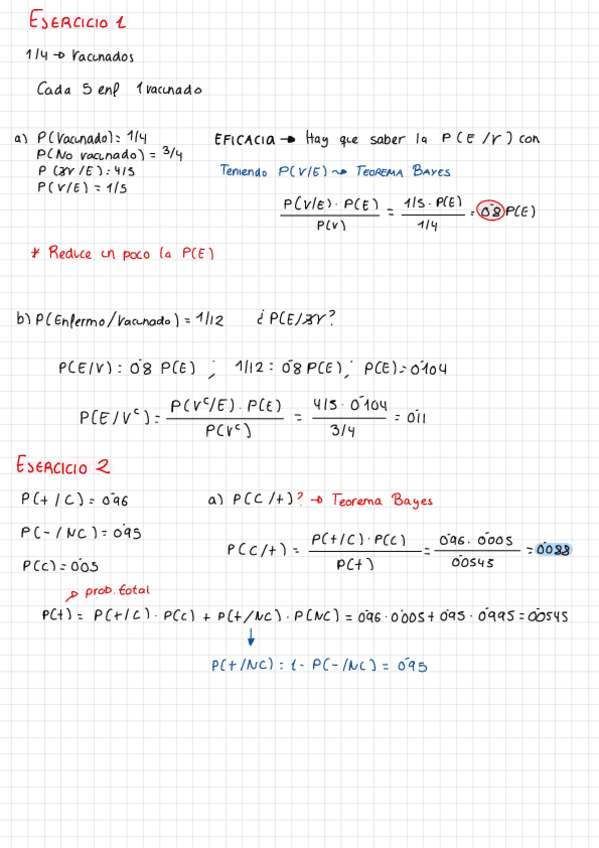 EJERCICIO 1
1/4 → Vacunados
Cada 5 enf 1 vacunado
a) P(Vacunado): 1/4
P(No vacunado) = 3/4
P(V/E): 4/5
P(V/E) = 1/5
EFICACIA → Hay que saber la P(E/V) con
Teniendo P(V/E) → TEOREMA BAYES
P(V/E) · P(E) / P(V) = 1/5 · P(E) / 1/4 = 0'8 P(E)
* Reduce un poco la P(E)
b) P(Enfermo/Vacunado) = 1/12 ¿P(E/V?
P(E/V): 0'8 P(E) ; 1/12 = 0'8 P(E) ; P(E) = 0'104
P(E/Vᶜ) = P(Vᶜ/E) · P(E) / P(Vᶜ) = 4/5 · 0'104 / 3/4 = 0'11
EJERCICIO 2
P(+/C) = 0'96
P(-/NC) = 0'95
P(C) = 0'05
a) P(C/+)? → Teorema Bayes
P(C/+) = P(+/C) · P(C) / P(+) = 0'96 · 0'005 / 0'0545 = 0'088
prob. total
P(+) = P(+/C) · P(C) + P(+/NC) · P(NC) = 0'96 · 0'005 + 0'95 · 0'995 = 0'0545
P(+/NC) : 1 - P(-/NC) = 0'95